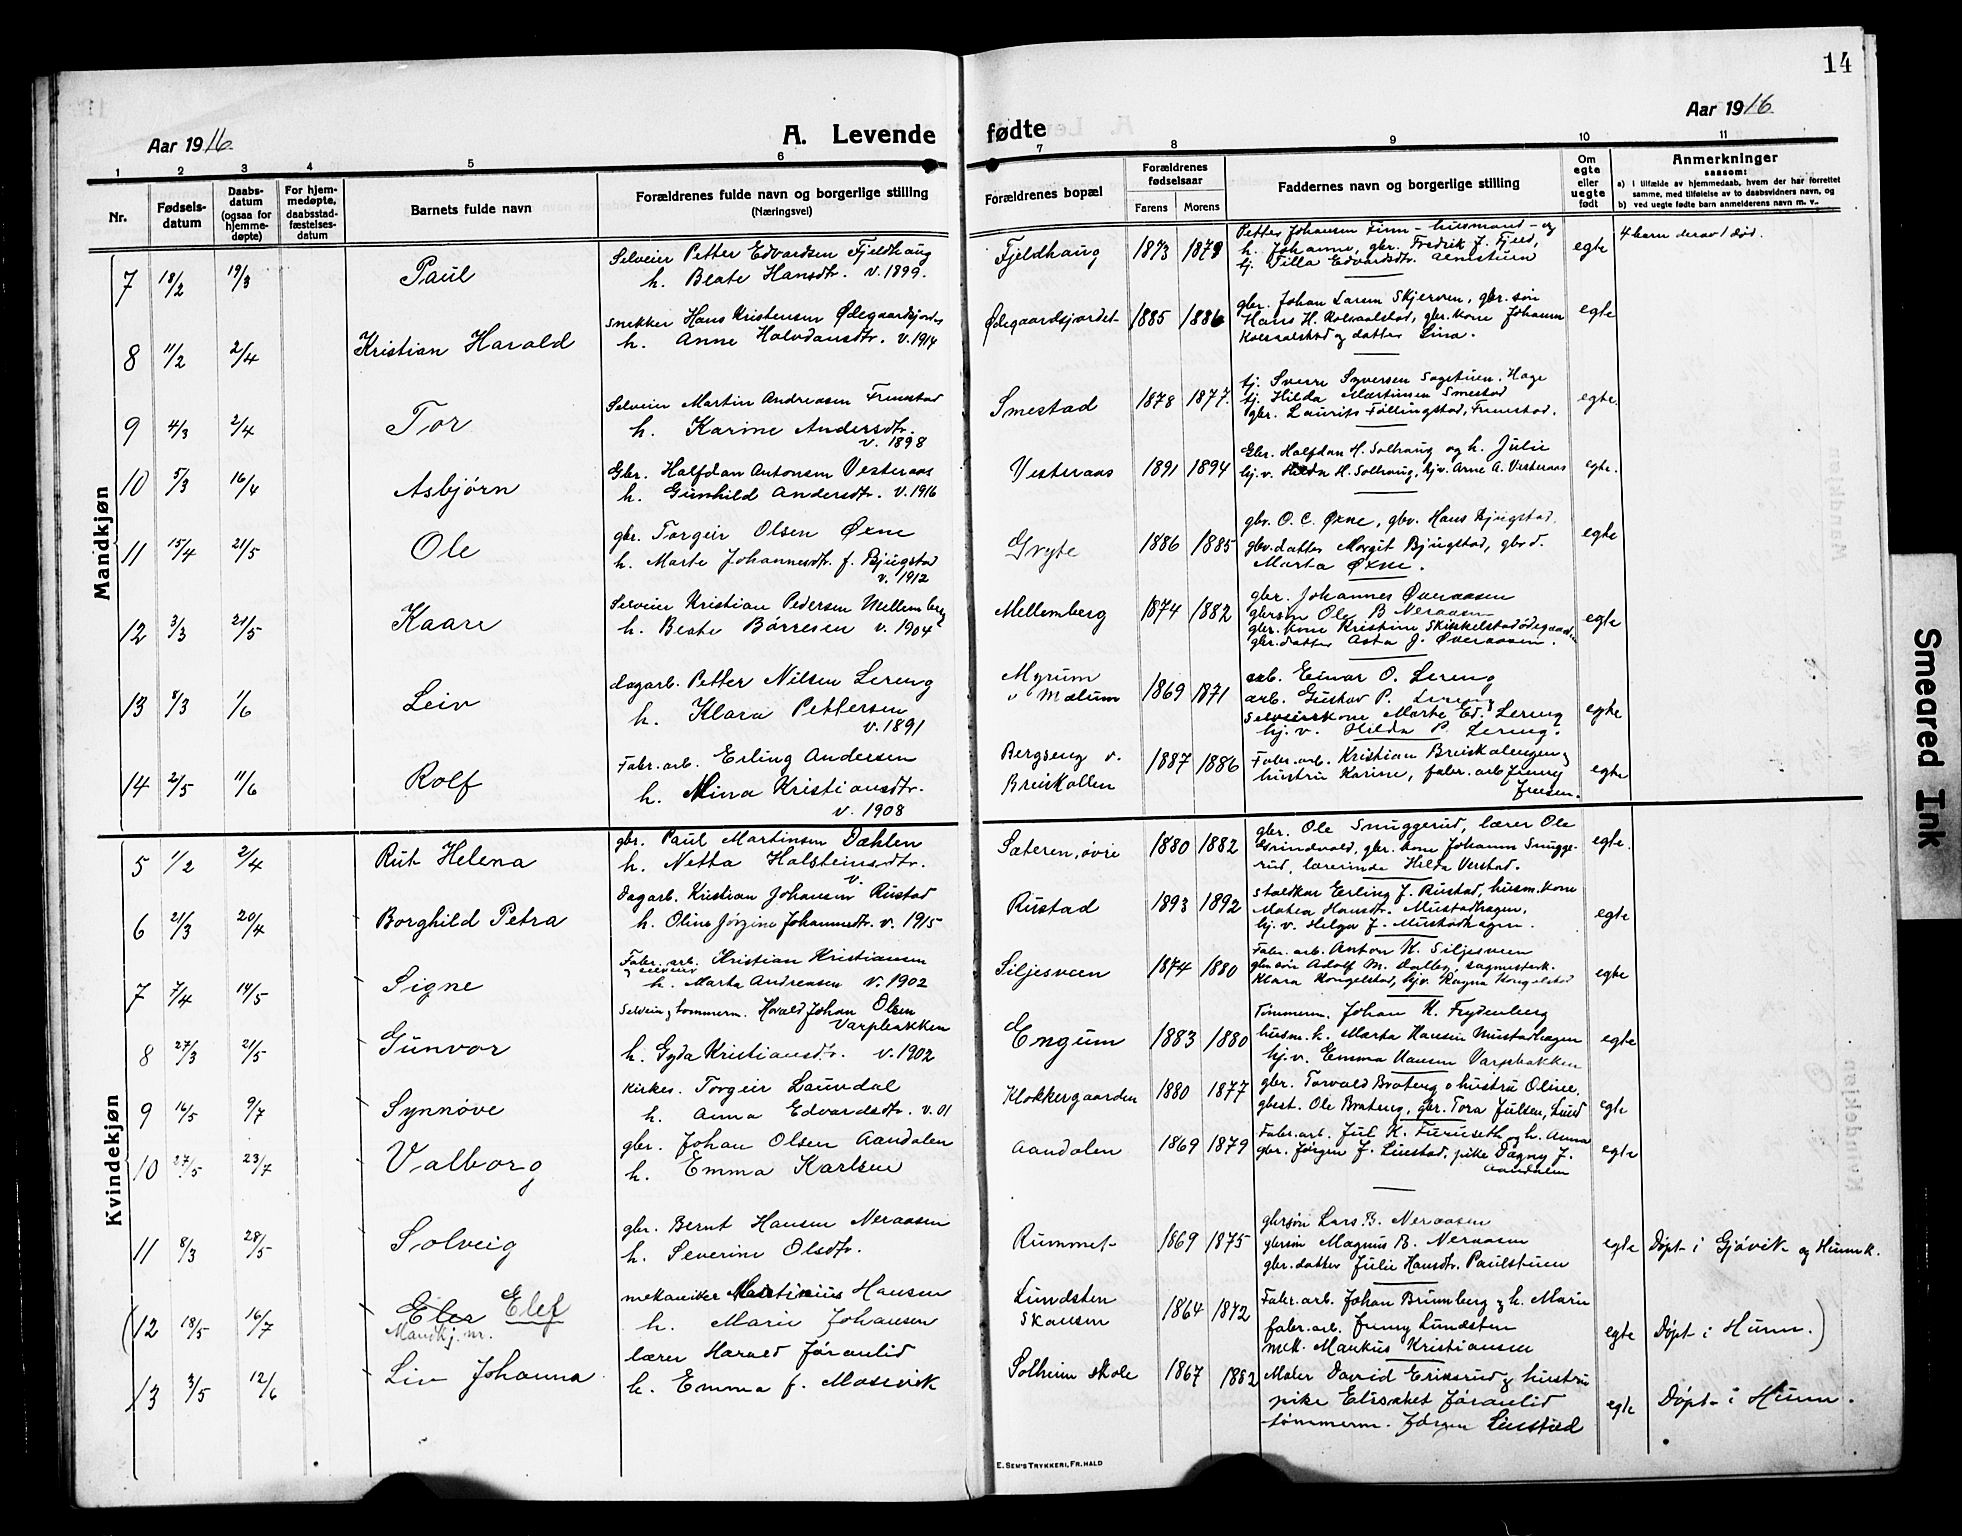 14
Aar 1916.
A. Levende fødte
Aar 1916
1 2 3 4 5 6 7 8 9 10 11
Nr.
Fødsels-
datum
Daabs-
datum
(ogsaa for
hjemme-
døpte)
For hjem-
medøpte,
daabsstad-
fæstelses-
datum
Barnets fulde navn
Forældrenes fulde navn og borgerlige stilling
(Næringsvei)
Forældrenes bopæl
Forældrenes
fødselsaar
Farens Morens
Faddernes navn og borgerlige stilling
Om
egte
eller
uegte
født
Anmerkninger
saasom:
a) i tilfælde av hjemmedaab, hvem der har forrettet
samme, med tilføielse av to daabsvidners navn, og
b) ved uegte fødte barn anmelderens navn m. v..
Mandkjøn
7 18/2 19/3 Paul
Selveier Petter Edvardsen Fjeldhaug
h. Beate Hansdtr. v. 1899.
Fjeldhaug 1873 1879
Petter Johansen Finn - husmand - og
h. Johanne, gbr. Fredrik J. Fjeld,
tj. Tilla Edvardsdtr. Almstuen
egte
4 barn derav 1 død.
8 11/2 2/4 Kristian Harald
Snekker Hans Kristensen Ødegaardsjordet
h. Anne Halvdansdtr. v. 1914
Ødegaardsjordet 1885 1886
gbr. Johan Larsen Skjerven, gbr. søn
Hans H. Kolvaalstad, gbr. kone Johanne
Kolvaalstad og datter Lina.
egte
9 4/3 2/4 Tor
Selveier Martin Andreasen Frenstad
h. Karine Andersdtr.
v. 1898
Smestad 1878 1877.
tj. Sverre Syversen Sagstuen, Hage
tj. Hilda Martinsen Smestad
gbr. Laurits Føllingstad, Frenstad.
egte.
10 5/3 16/4 Asbjørn
Gbr. Halfdan Antonsen Vesteraas
h. Gunhild Andersdtr. v. 1916
Vesteraas 1891 1894
Gbr. Halfdan H. Solhaug og h. Julie
hj. v. Hilda H. Solhaug, hjv. Arne A. Vesteraas
egte.
11 15/4 21/5 Ole
gbr. Torgeir Olsen Øxne
h. Marte Johannesdtr. f. Bjugstad
v. 1912
Gryte 1886 1885
gbr. O. C. Øxne, gbr. Hans Bjugstad,
gbr. datter Margit Bjugstad, gbr d.
Marta Øxne.
egte
12 3/3 21/5 Kaare
Selveier Kristian Pedersen Mellemberg
h. Beate Børresen v. 1904
Mellemberg 1874 1882
gbr. Johannes Øveraasen
gbrsøn Ole B Neraasen
gbr. kone Kristine Skikkelstadødegaarden
gbr. datter Asta J. Øveraasen.
egte
13 8/3 1/6 Leiv
dagarb. Petter Nilsen Lereng
h. Klara Pettersen
v. 1891
Myrum
v Mælum 1869 1871
arb. Einar O. Lereng
arb. Gustav P. Lereng
Selveierskone Marte Ed. Lereng
hj. v. Hilda P. Lereng.
egte
14 2/5 11/6 Rolf
Fabr. arb. Erling Andersen
h. Mina Kristiansdtr.
v. 1908
Bergseng v.
Breiskallen 1887 1886
Fabr. arb. Kristian Breiskalengen og
hustru Karine, fabr. arb Jenny
Juelsen.
egte
Kvindekjøn
5 1/2 2/4 Rut Helena
gbr. Paul Martinsen Dæhlen
h. Netta Halsteinsdtr.
Sæteren, øvre 1880 1882
gbr. Ole Snuggerud, lærer Ole
Grindvold, gbr. kone Johanne Snugge-
rud, lærerinde Hilda Verstad.
egte.
6 21/3 20/4 Borghild Petra
Dagarb. Kristian Johansen v. Rustad
h. Oline Jørgine Johannesdtr. v. 1915
Rustad 1893 1892
Staldkar Erling J. Rustad, husm. kone
Matea Hansdtr. Mustadhagen,
hj. v. Helga J. Mustadhagen.
egte
7 7/4 14/5 Signe
Fabr. arb. Kristian Kristiansen
og selveier
h. Marta Andreasen v. 1902
Siljesveen 1874 1880
Fabr. arb. Anton K. Siljesveen
gbr. søn Adolf M. Dalby, sagmesterk.
Klara Kongelstad, hjv. Ragna Kongelstad
egte
8 27/3 21/5 Gunvor
Selveier og tømmerm. Harald Johan Olsen
Varpbakken
h. Gyda Kristiansdtr. v. 1902
Engum 1883 1880
Tømmerm. Johan K. Frydenberg
husm. k. Marta Hansen Mustadhagen
hj. v. Emma Hansen Varpbakken
egte
9 16/5 9/7 Synnøve
Kirkes. Torgeir Laundal
h. Anna Edvardsdtr. v. 01
Klokkergaarden 1880 1877
gbr. Torvald Brateng o hustru Oline.
gbest. Ole Brateng, gbr. Tora Julsen, Lund
egte
10 27/5 23/7 Valborg
gbr. Johan Olsen Aandalen
h. Emma Karlsen
Aandalen 1869 1879
Fabr. arb. Jul K. Furuseth og h. Anna
gbr. Jørgen J. Liustad, pike Dagny J.
Aandalen
egte
11 8/3 28/5 Solveig
gbr. Bernt Hansen Neraasen
h. Severine Olsdtr.
Rummet 1869 1875
gbrsøn Lars B. Neraasen
gbrsøn Magnus B. Neraasen
gbr. datter Julie Hansdtr. Paulstuen
egte
Døpt i Gjøvik og Hunn k.
(12 18/5 16/7 Eles Elef
Mandkj. nr.
mekaniker Martinius Hansen
h. Marie Johansen
Lundsten
Skansen 1864 1872
Fabr. arb. Johan Brumberg og h. Marie
fabr. arb. Jenny Lundsten
mek. Markus Kristiansen
egte
Døpt i Hunn.)
13 3/5 12/6 Liv Johanna
lærer Harald Føranlid
h. Emma f. Mosevik
Solheim skole 1867 1882
Maler David Eriksrud og hustru
pike Elisabet Føranlid
tømmerm. Jørgen Liustad
egte
Døpt i Hunn.
E. SEM'S TRYKKERI, FR.HALD
Smeared Ink